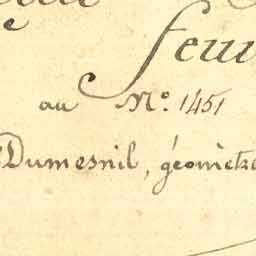 feui
au N.º 1451
Dumesnil, géomètre